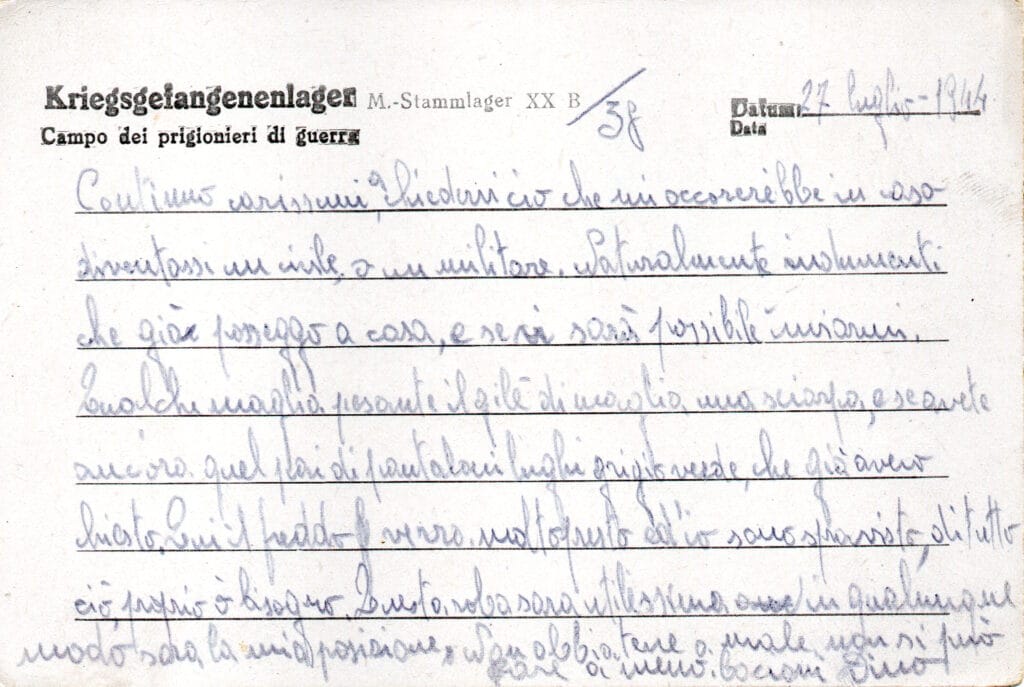 Kriegsgefangenenlager M.-Stammlager XX B / 38
Campo dei prigionieri di guerra
Datum: 27 luglio - 1944
Data
Continuo carissimi a chiedervi ciò che mi occorerebbe in caso
diventassi un civile, o un militare. Naturalmente indumenti
che già posseggo a casa, e se vi sarà possibile inviarmi.
Qualche maglia pesante il gilè di maglia una sciarpa, e se avete
ancora quel pai di pantaloni lughi grigio verde, che già avevo
chiesto. Qui il freddo verra molto presto ed io sono sprovisto, di tutto
ciò, proprio ò bisogno. Questa roba sara utilissima in qualunque
modo sara la mia posizione. Non abbiatene a male non si può
fare a meno. bacioni Dino